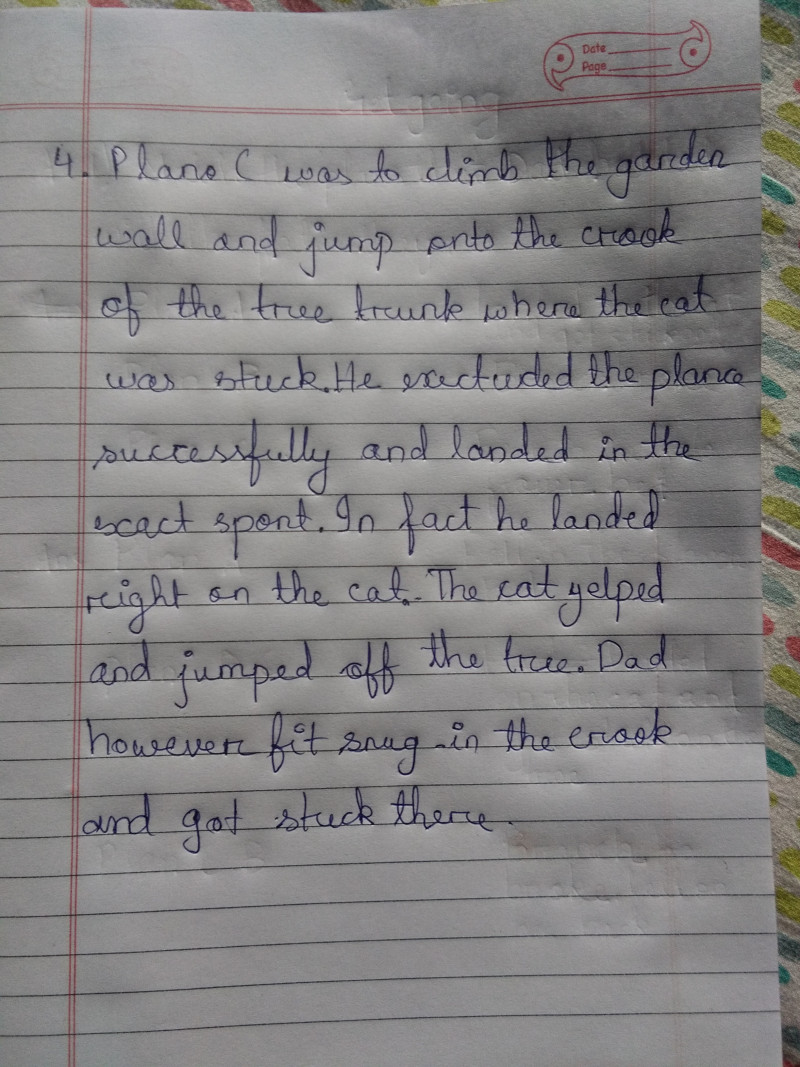 Date
Page
4. Plano C was to climb the garden
wall and jump onto the crook
of the tree trunk where the cat
was stuck. He exectuded the plana
successfully and landed in the
excact spont. In fact he landed
reight on the cat. The cat yelped
and jumped off the tree. Dad
however fit snug in the crook
and got stuck there.